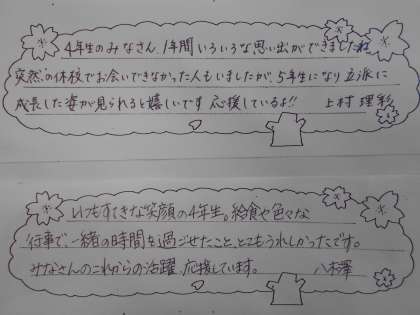 4年生のみなさん、1年間いろいろな思い出ができましたね
突然の休校でお会いできなかった人もいましたが、5年生になり立派に
成長した姿が見られると嬉しいです 応援しているよ!! 上村 理彩
いつもすてきな笑顔の4年生。給食や色々な
行事で、一緒の時間を過ごせたこと、とてもうれしかったです。
みなさんのこれからの活躍、応援しています。 八木澤